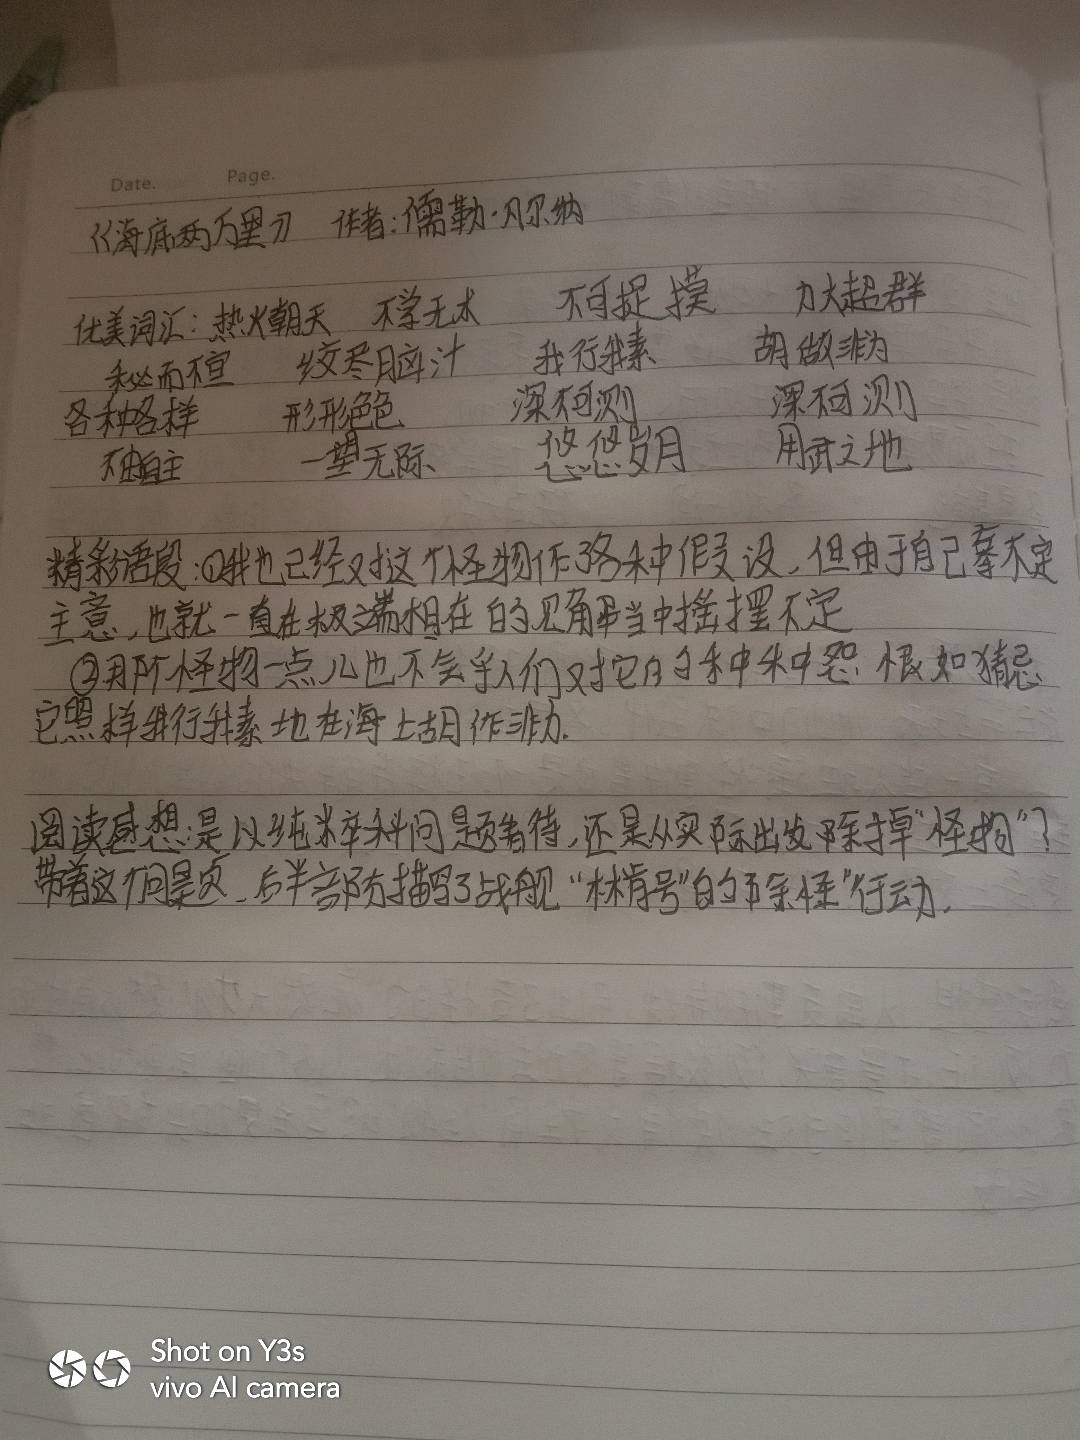 Date. Page.
《海底两万里》 作者:儒勒·凡尔纳
优美词汇:热火朝天 不学无术 不可捉摸 力大超群
秘而不宣 绞尽脑汁 我行我素 胡做非为
各种各样 形形色色 深不可测 深不可测
不由自主 一望无际 悠悠岁月 用武之地
精彩语段:①我也已经对这个怪物作了各种假设,但由于自己拿不定
主意,也就一直在极端相在的见解当中摇摆不定
②那怪物一点儿也不会乎人们对它的种种怨恨如猜忌
它照样我行我素地在海上胡作非为.
阅读感想:是以纯粹科问题看待,还是从实际出发除掉“怪物”?
带着这个问题,后半部分描写了战舰“林肯号”的“除怪”行动.
Shot on Y3s
vivo AI camera